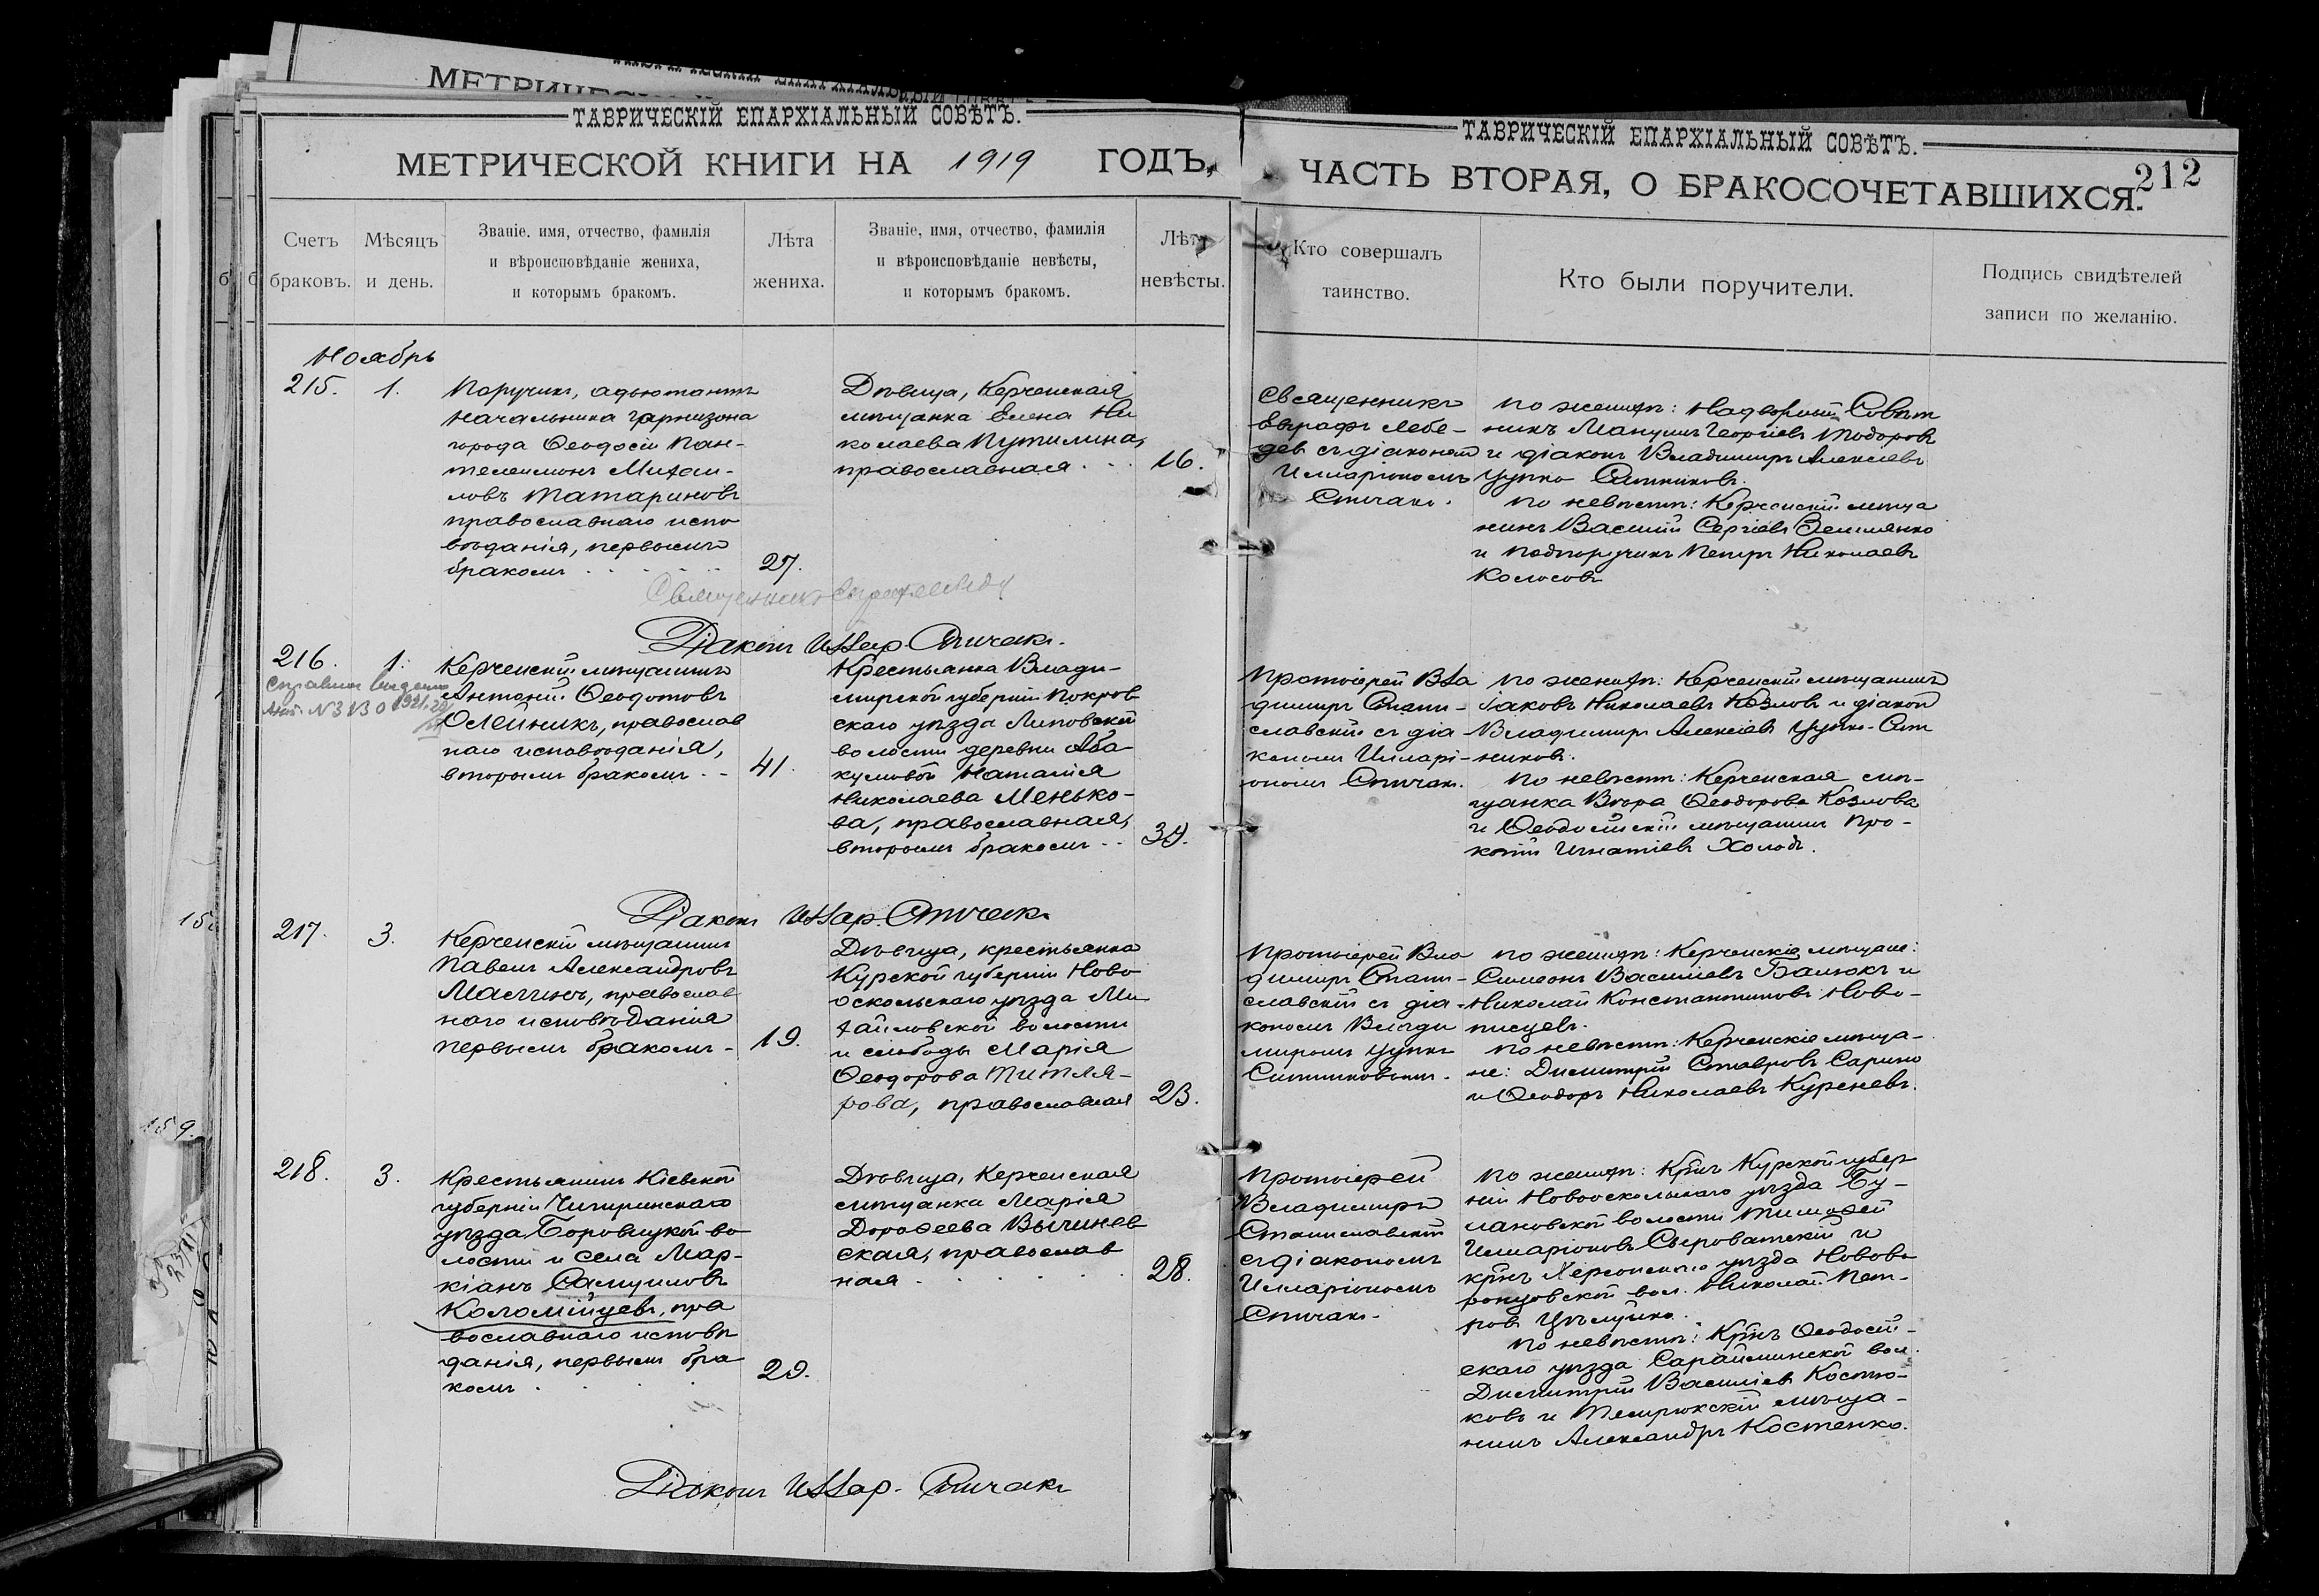 ТАВРИЧЕСКІЙ ЕПАРХІАЛЬНЫЙ СОВѢТЪ.
МЕТРИЧЕСКОЙ КНИГИ НА 1919 ГОДЪ,
Счетъ браковъ.
Мѣсяцъ и день.
Званіе, имя, отчество, фамилія
и вѣроисповѣданіе жениха,
и которымъ бракомъ.
Лѣта жениха.
Званіе, имя, отчество, фамилія
и вѣроисповѣданіе невѣсты,
и которымъ бракомъ.
Лѣта невѣсты.
ТАВРИЧЕСКІЙ ЕПАРХІАЛЬНЫЙ СОВѢТЪ.
ЧАСТЬ ВТОРАЯ, О БРАКОСОЧЕТАВШИХСЯ.
212
Кто совершалъ
таинство.
Кто были поручители.
Подпись свидѣтелей
записи по желанію.
Ноябрь
215. 1.
Поручикъ, адъютантъ
начальника гарнизона
города Ѳеодосіи Пан-
телеимонъ Михаи-
ловъ Татариновъ
православнаго испо
вѣданія, первымъ
бракомъ 27.
Дѣвица, Керченская
мѣщанка Елена Ни
колаева Путилина,
православная 16.
Священникъ
Евграфъ Лебе-
девъ съ діакономъ
Илларіономъ
Спичакъ.
По женихѣ: Надворный Совѣт
никъ Мануилъ Георгіевъ Тодоровъ
и діаконъ Владиміръ Алексѣевъ
Цупко Ситниковъ.
По невѣстѣ: Керченскій мѣща
нинъ Василій Сергіевъ Землянко
и подпоручикъ Петръ Николаевъ
Колосовъ
Священникъ
Діаконъ Иллар. Спичакъ.
216. 1.
Керченскій мѣщанинъ
Антоній Ѳеодотовъ
Олейникъ, православ
наго исповѣданія,
вторымъ бракомъ 41.
Крестьянка Влади-
мірской губерніи Покров
скаго уѣзда Липовской
волости деревни Аба
кумовой Наталія
Николаева Менько-
ва, православная,
вторымъ бракомъ 34.
Протоіерей Вла
диміръ Стани-
славскій съ діа
кономъ Илларі-
ономъ Спичакъ.
По женихѣ: Керченскій мѣщанинъ
Іаковъ Николаевъ Козловъ и діаконъ
Владиміръ Алексіевъ Цупко-Сит
никовъ.
По невѣстѣ: Керченская мѣ-
щанка Вѣра Ѳеодорова Козлова
и Ѳеодосійскій мѣщанинъ Про-
копій Игнатіевъ Холодъ.
Діаконъ Иллар. Спичакъ
217. 3.
Керченскій мѣщанинъ
Павелъ Александровъ
Маслинъ, православ
наго исповѣданія
первымъ бракомъ - 19.
Дѣвица, крестьянка
Курской губерніи Ново
оскольскаго уѣзда Ми
хайловской волости
и слободы Марія
Ѳеодорова Титля-
рова, православная 23.
Протоіерей Вла
диміръ Стани-
славскій съ діа-
кономъ Влади
миромъ Цупко
Ситниковымъ.
По женихѣ: Керченскіе мѣщане:
Симеонъ Василіевъ Балюкъ и
Николай Константиновъ Ново-
писцевъ.
По невѣстѣ: Керченскіе мѣща-
не: Димитрій Ставровъ Сарино
и Ѳеодоръ Николаевъ Куреневъ.
218. 3.
Крестьянинъ Кіевской
губерніи Чигиринскаго
уѣзда Боровицкой во
лости и села Мар-
кіанъ Самуиловъ
Коломійцевъ, пра
вославнаго исповѣ
данія, первымъ бра
комъ 29.
Дѣвица, Керченская
мѣщанка Марія
Дороѳеева Вычинев
ская, православ
ная 28.
Протоіерей
Владиміръ
Станиславскій
съ діакономъ
Илларіономъ
Спичакъ.
По женихѣ: Кр-нъ Курской губер
ніи Новооскольскаго уѣзда Бу-
лановской волости Тимоѳей
Илларіоновъ Сыроватскій и
кр-нъ Херсонскаго уѣзда Нововo
ронцовской вол. Николай Пет-
ровъ
По невѣстѣ: Кр-нъ Ѳеодосій-
скаго уѣзда Сарайминской вол.
Димитрій Василіевъ Костю-
ковъ и Темрюкскій мѣща-
нинъ Александръ Костенко.
Діаконъ Иллар. Спичакъ